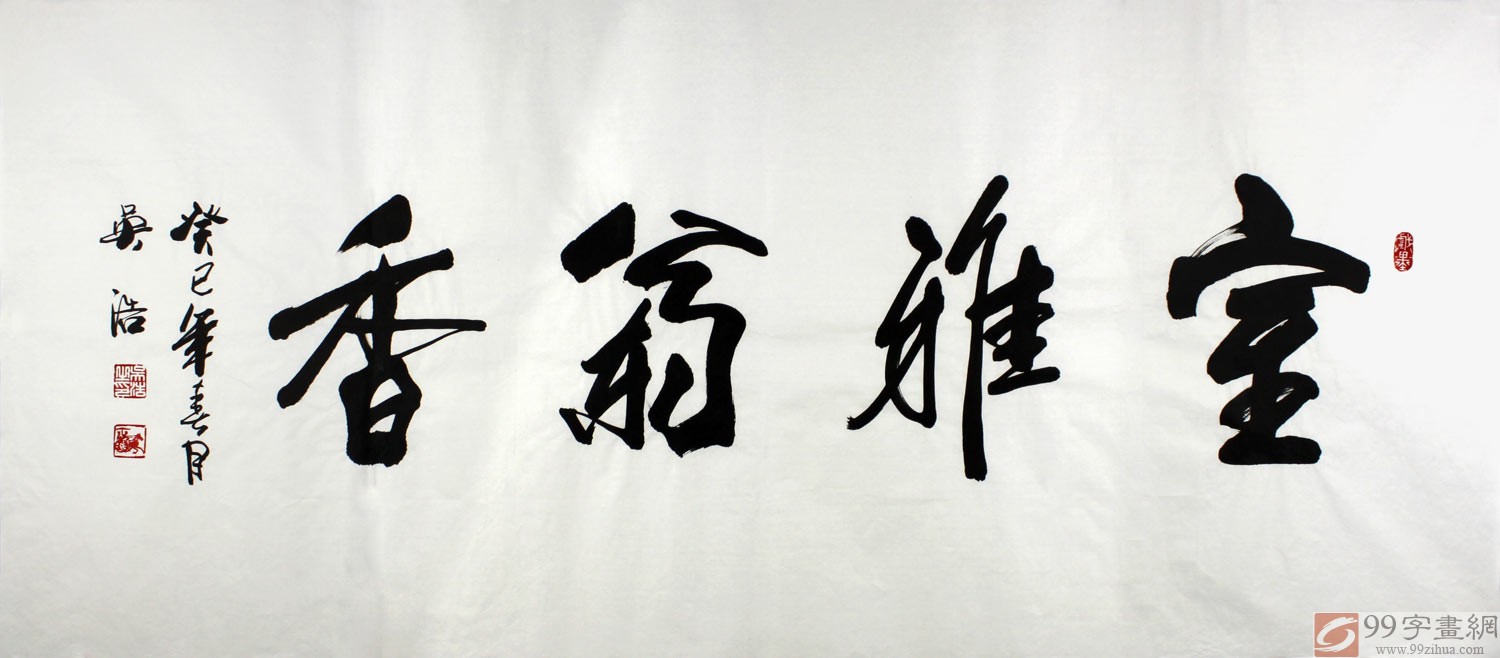 室雅翁香
癸巳年春月
吳浩
99字畫網
www.99zihua.com